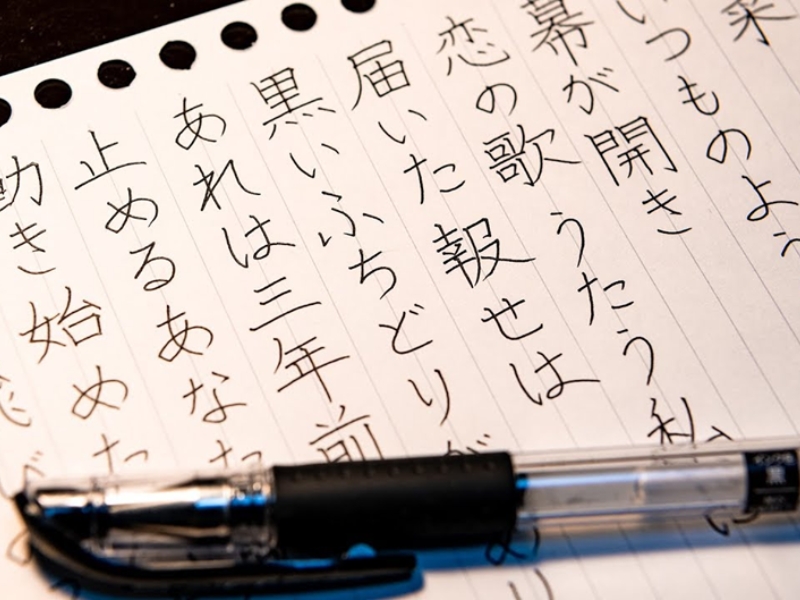 采
いつものよう
幕が開き
恋の歌 うたう私
届いた報せは
黒いふちどりが
あれは三年前
止めるあなた
動き始めた